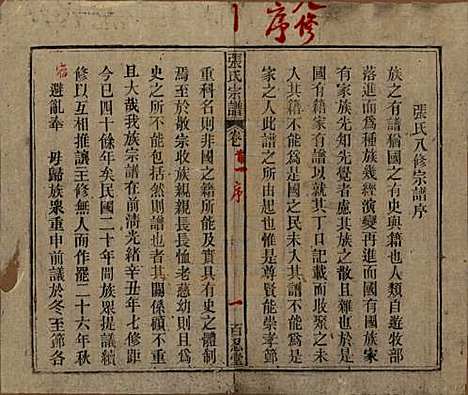 八修
序
張氏八修宗譜序
族之有譜猶國之有史與籍也人類自遊牧部
落進而爲種族幾經演變再進而有國有國族家
有家族當是時先知先覺者慮其族之散且雜也
國有籍家有譜以其丁口記載而收聚之未
入其籍不能爲是國之民未入其譜不能爲是
家之人此譜之所由起也惟尊賢能崇孝節
張氏宗譜
卷首一
序
一
百忍堂
重科名則非國之籍所能及實具有史之體制
焉至於敬宗收族親親長長恤老慈幼則且爲
史之所不能包括然則譜也者其關係顧不重
且大哉我族宗譜在前清光緒辛丑年七修距
今已四十餘年矣民國二十年間族衆提議續
修以互相推讓主修無人而作罷二十六年秋
宏避亂奉 母歸族衆重申前議於冬至節各